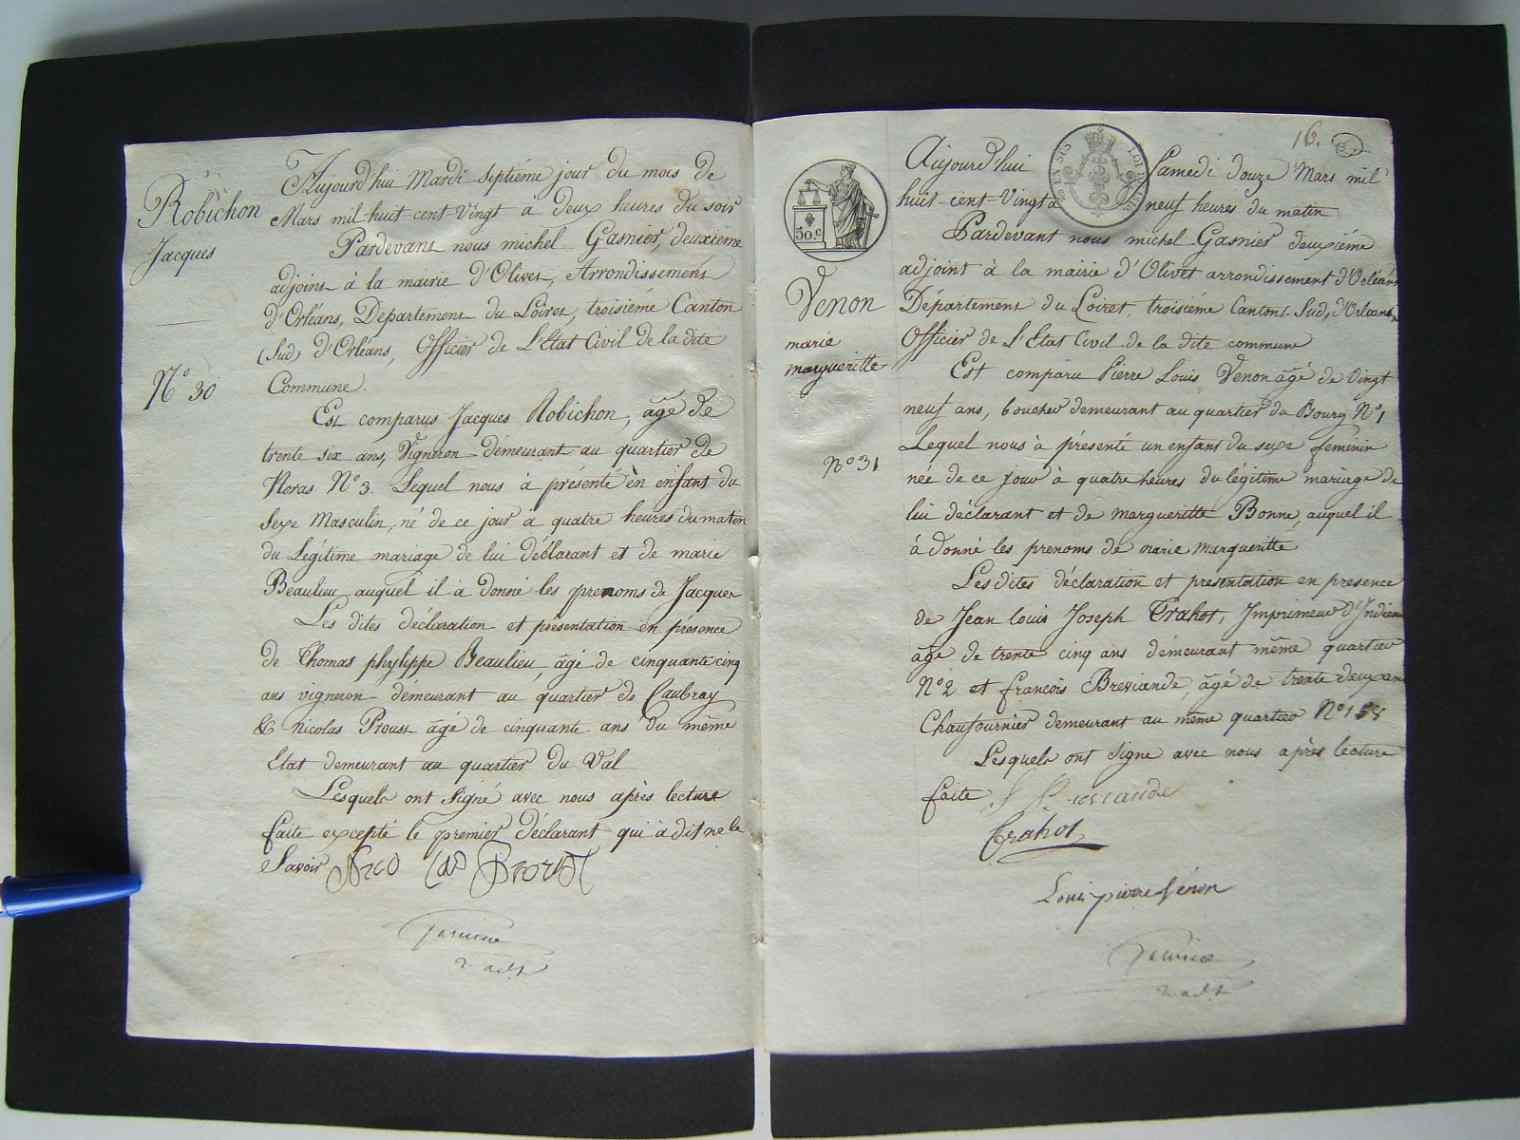 Robichon
Jacques
N° 30
Aujourd'hui Mardi septiéme jour du mois de
Mars mil huit cent Vingt a deux heures du soir
Pardevant nous michel Gasnier, deuxiéme
adjoint à la mairie d'Olivet, Arrondissement
d'Orléans, Departement du Loiret, troisiéme Canton
(Sud) d'Orléans, Officier de L'Etat Civil de la dite
Commune.
Est comparus Jacques Robichon, âgé de
trente six ans, Vigneron démeurant au quartier de
N° 3. Lequel nous à présenté un enfant du
Sexe Masculin, né de ce jour à quatre heures du maten
du Légitime mariage de lui déclarant et de marie
Beaulieu auquel il à donné les prenoms de Jacques
Les dites déclaration et présentation en présence
de Thomas phylippe Beaulieu, âgé de cinquante cinq
ans vigneron démeurant au quartier de Caubray
& nicolas Proust âgé de cinquante ans du même
Etat demeurant au quartier du Val
Lesquels ont Signé avec nous après lecture
faite excepté le premier déclarant qui à dit ne le
Savoir
2. adjt
16.
50.c
Venon
marie
margueritte
N° 31
Aujourd'hui Samedi douze Mars mil
huit cent Vingt a neuf heures du matin
Pardevant nous michel Gasnier deuxiéme
adjoint à la mairie d'Olivet arrondissement d'Orléans
Département du Loiret, troisiéme Canton Sud, d'Orléans,
Officier de l'Etat Civil de la dite commune
Est comparu Pierre Louis Venon âgé de Vingt
neuf ans, boucher demeurant au quartier du Bourg N° 1
Lequel nous à présenté un enfant du sexe feminin
née de ce jour à quatre heures du légitime mariage de
lui déclarant et de margueritte Bonne, auquel il
à donné les prenoms de marie Margueritte
Les dites déclaration et presentation en presence
de Jean louis Joseph Trahot, Imprimeur d'Indienne
âgé de trente cinq ans démeurant même quartier
N° 2 et françois Breviande, âgé de trente deux ans
Chaufournier demeurant au même quartier N° 158
Lesquels ont Signe avec nous après lecture
faite
Trahot
Louis pierre Vénon
2. adjt